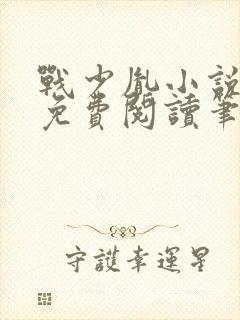 戰少胤小說
免費閱讀筆
守護幸運星